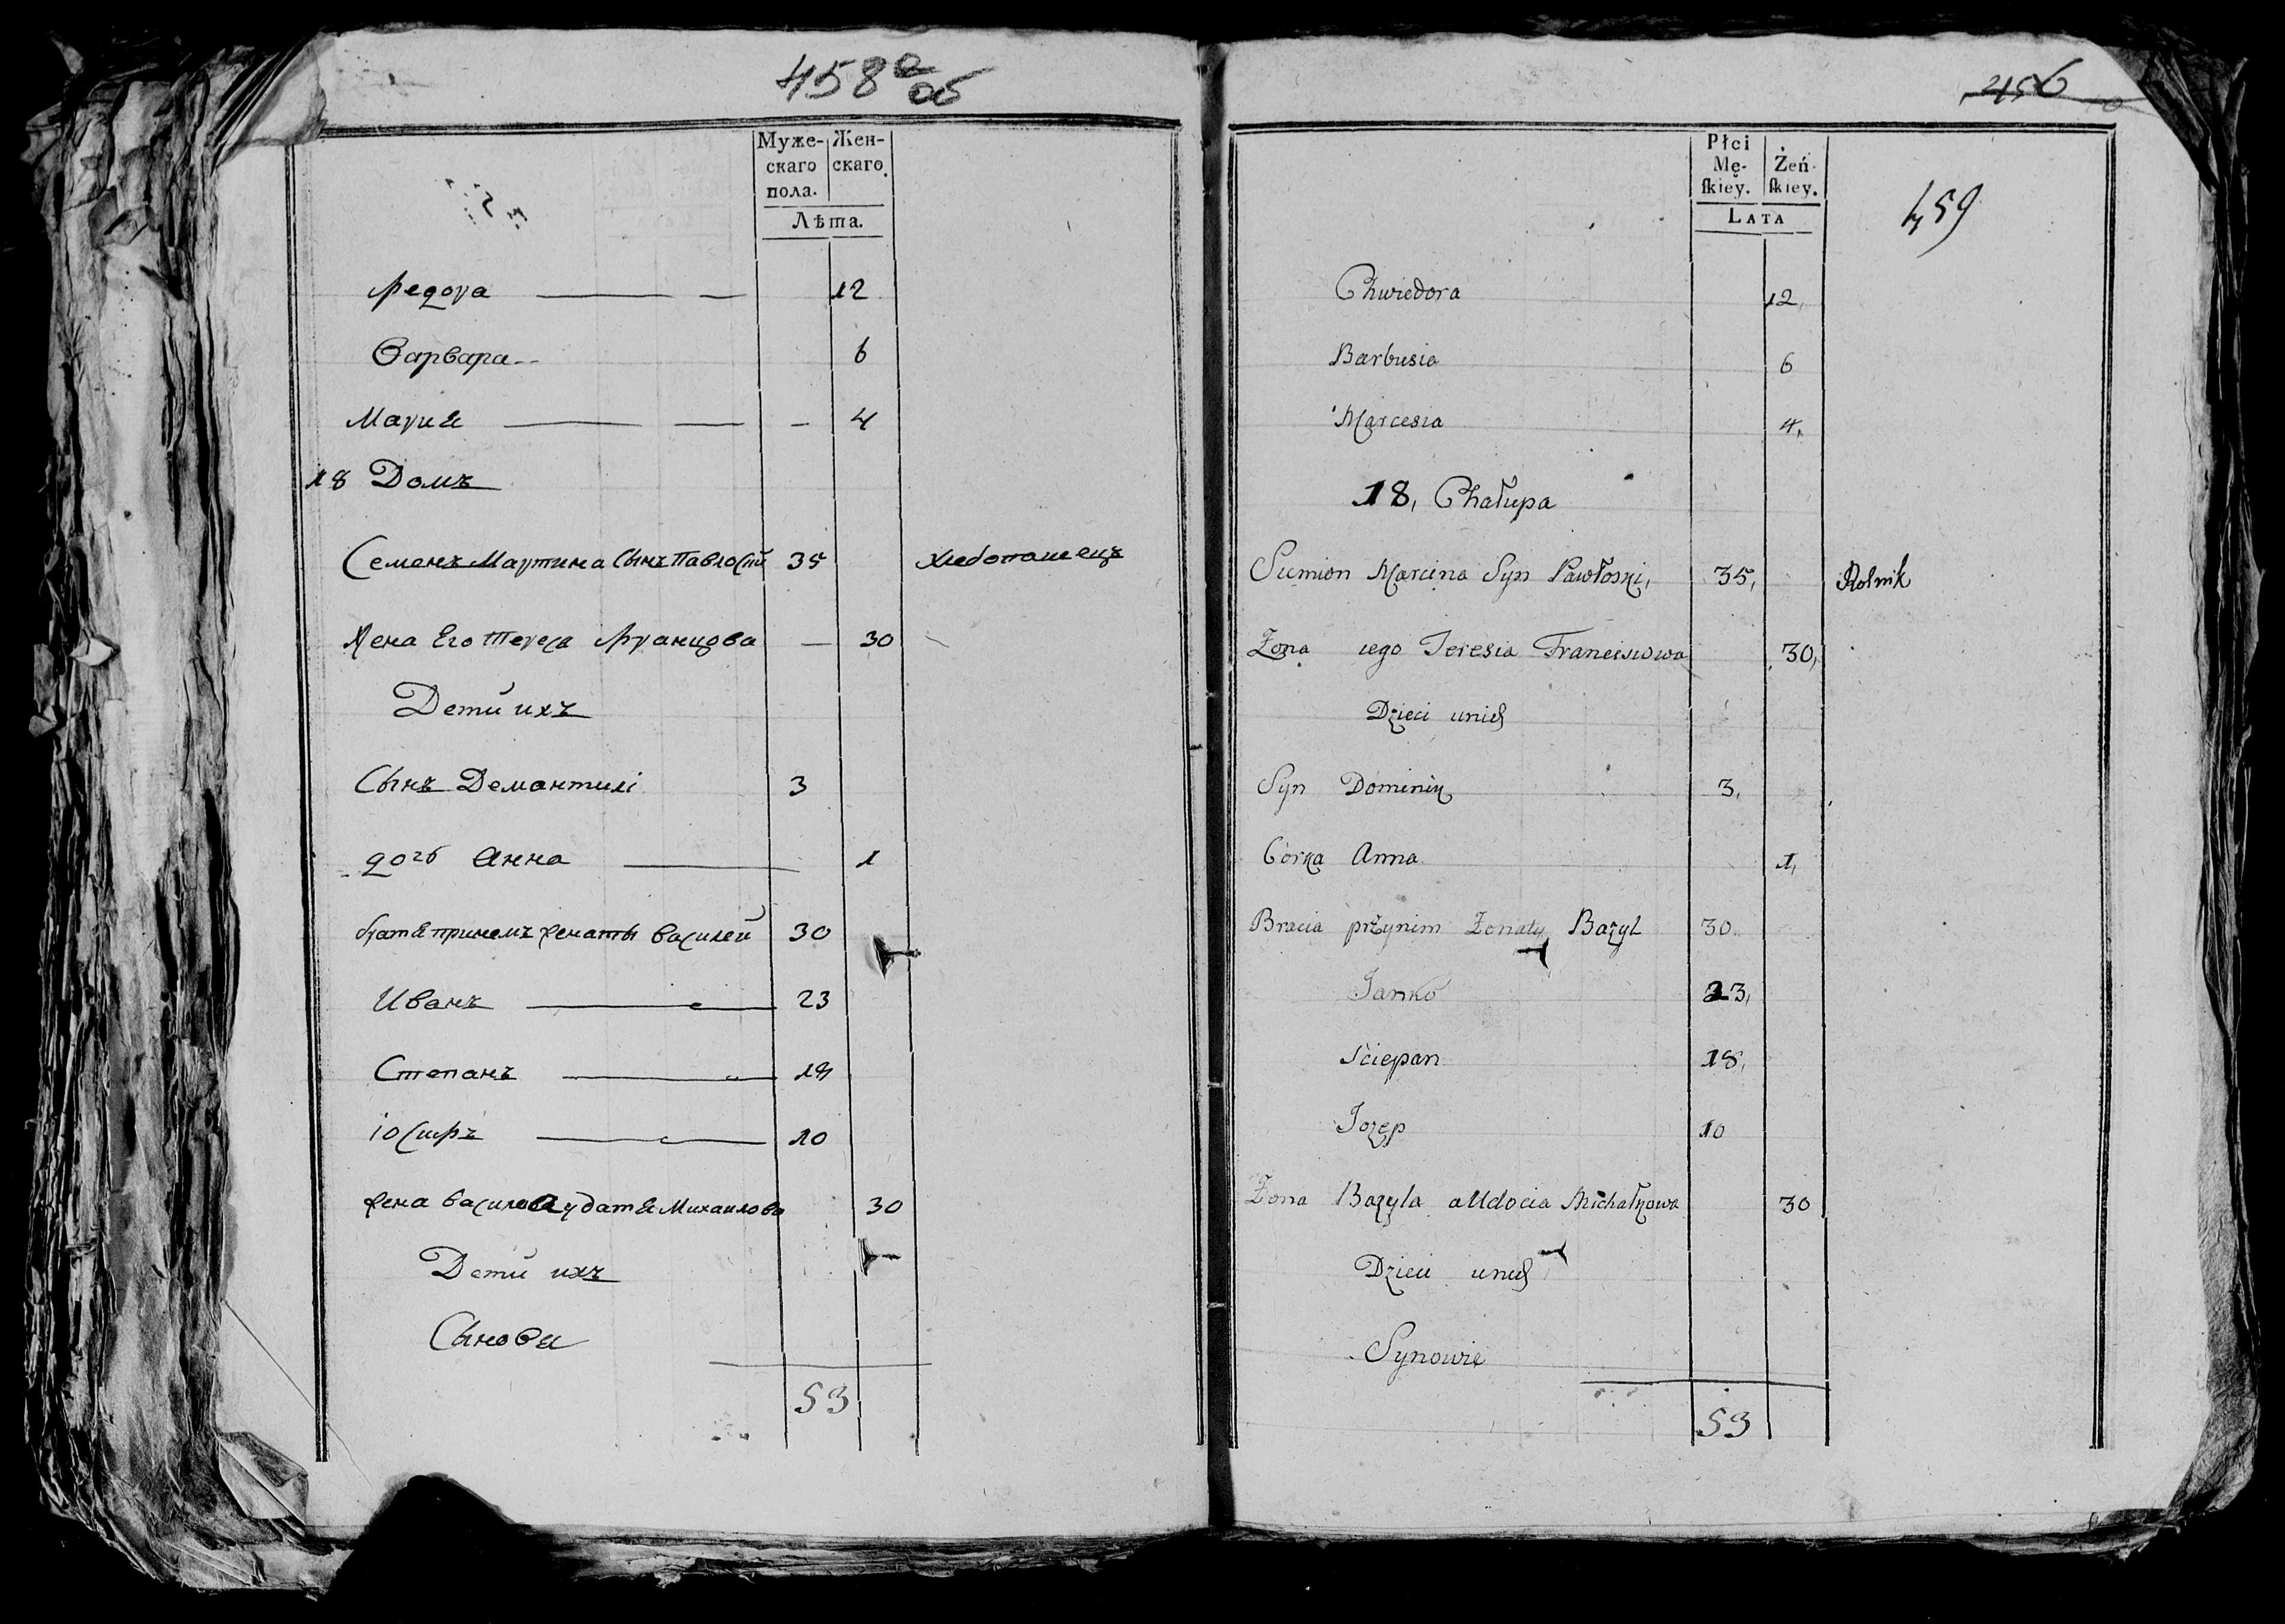 458 а об
Муже-скаго пола. Жен-скаго.
Лѣта.
Федора 12
Варвара 6
Мария 4
18 Домъ
Семенъ Мартина Сынъ Павлоский 35 хлебопашецъ
Жена Его Тереса Францова 30
Дети ихъ
Сынъ 3
дочь Анна 1
братя принемъ женаты Василей 30
Иванъ 23
Степанъ 18
іосифъ 10
жена Василя Аудатя Михаилова 30
Дети ихъ
Синовя
53
456
459
Płci Mę-ſkiey. Żeń-ſkiey.
LATA
Chwiedora 12,
Barbusia 6
Marcesia 4,
18, Chałupa
Siemion Marcina Syn Pawłoski, 35, Rolnik
Żona iego Teresia Franciszkowa 30,
Dzieci unich
Syn Dominik 3,
Córka Anna 1,
Bracia przynim Żonaty Bazyl 30
Janko 23,
Sciepan 18,
Jozep 10
Żona Bazyla aUdocia Michałkowa 30
Dzieci unich
Synowie
53